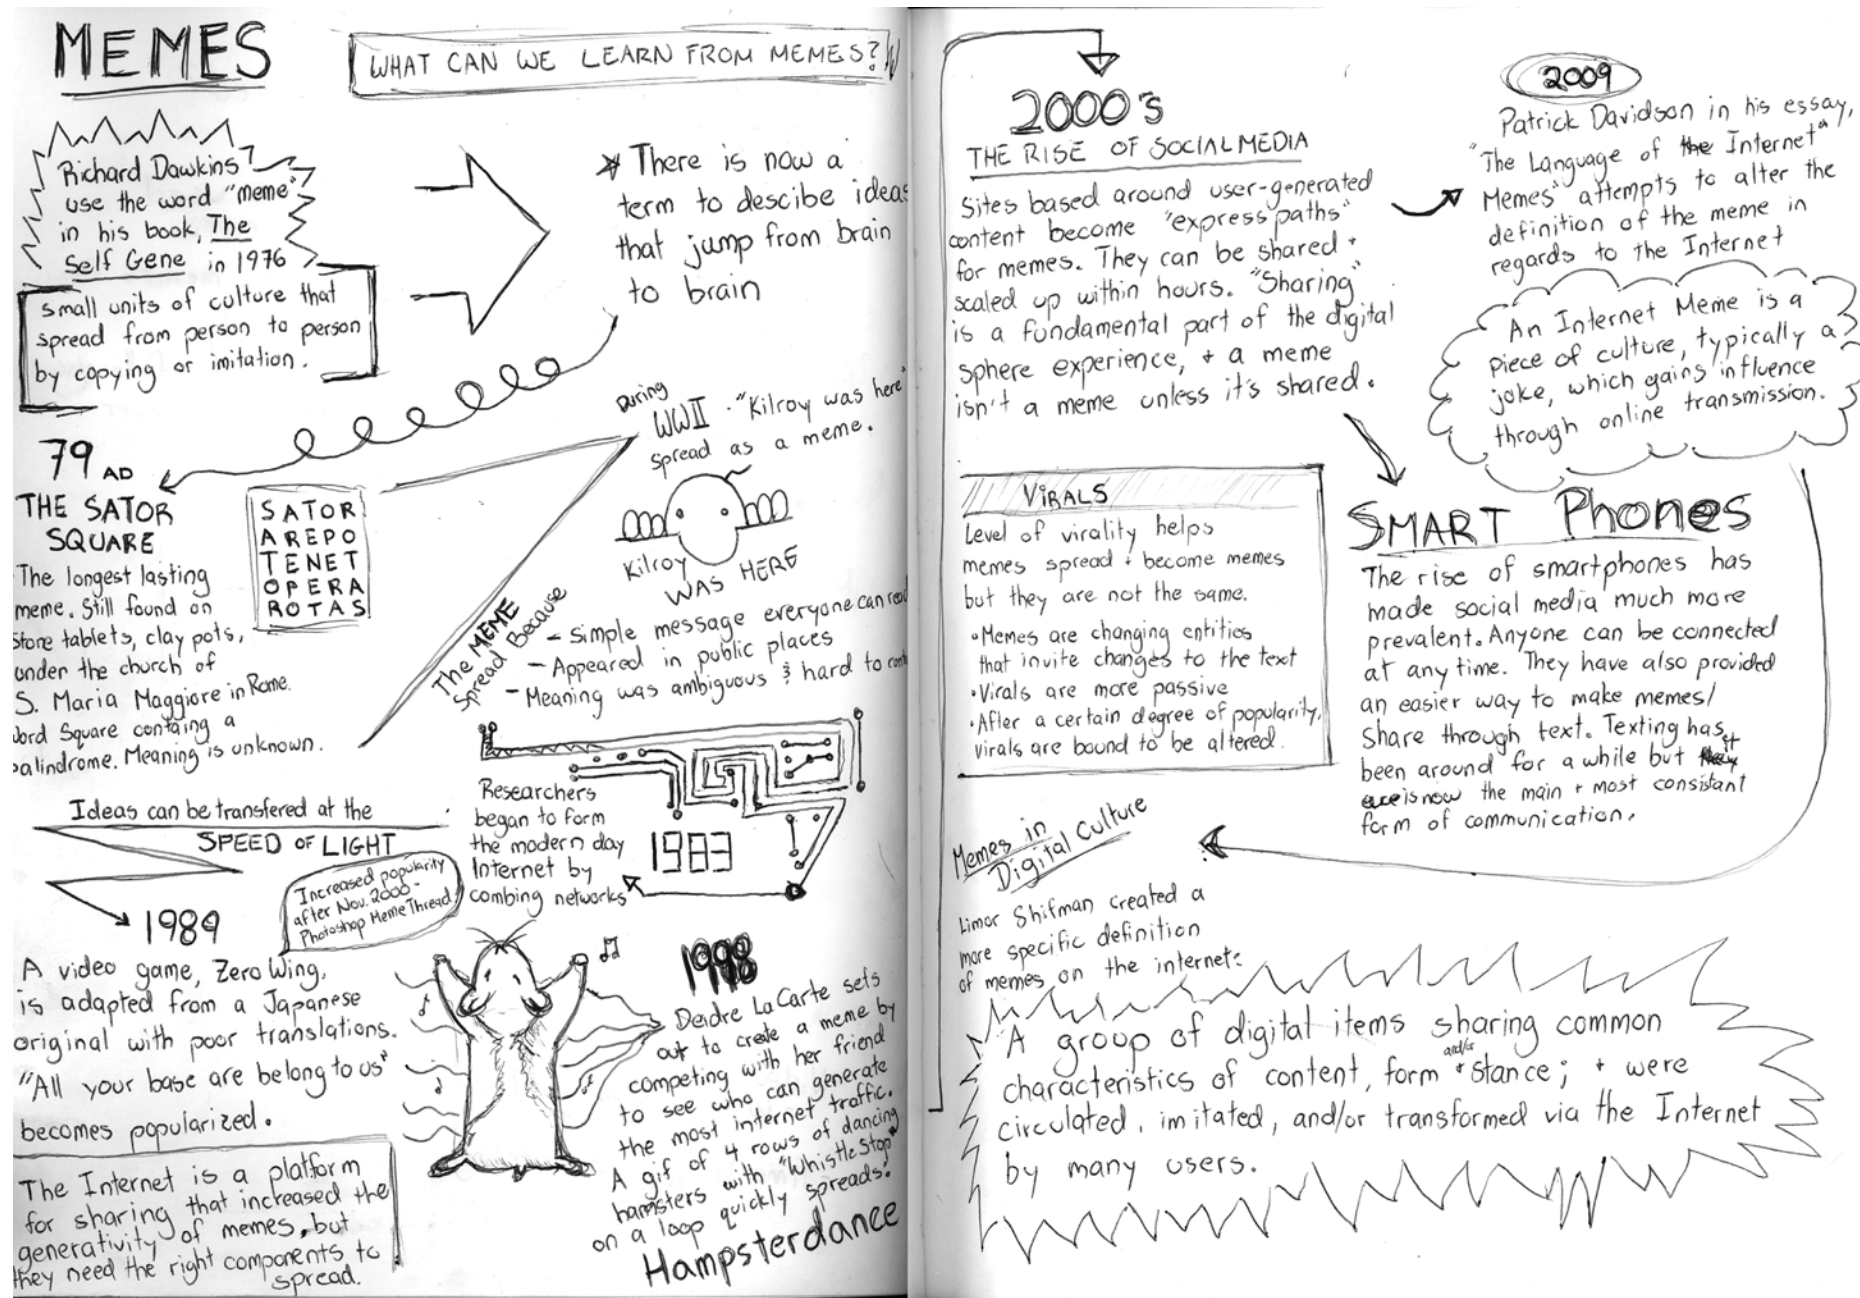 MEMES
WHAT CAN WE LEARN FROM MEMES?
Richard Dawkins
use the word "meme"
in his book, The
Self Gene in 1976
small units of culture that
spread from person to person
by copying or imitation.
There is now a
term to descibe ideas
that jump from brain
to brain
79 AD
THE SATOR
SQUARE
SATOR
AREPO
TENET
OPERA
ROTAS
The longest lasting
meme. Still found on
stone tablets, clay pots,
under the church of
S. Maria Maggiore in Rome.
Word Square containg a
palindrome. Meaning is unknown.
During
WWII - "Kilroy was here"
spread as a meme.
Kilroy
WAS HERE
The MEME
Spread Because
- Simple message everyone can read
- Appeared in public places
- Meaning was ambiguous & hard to
Ideas can be transfered at the
SPEED OF LIGHT
Researchers
began to form
the modern day
Internet by
combing networks
1983
1989
Increased popularity
after Nov. 2000 -
Photoshop Meme Thread
A video game, Zero Wing,
is adapted from a Japanese
original with poor translations.
"All your base are belong to us"
becomes popularized.
The Internet is a platform
for sharing that increased the
generativity of memes, but
they need the right components to
spread.
1998
Deidre LaCarte sets
out to create a meme by
competing with her friend
to see who can generate
the most internet traffic.
A gif of 4 rows of dancing
hamsters with "Whistle Stop"
on a loop quickly spreads.
Hampsterdance
2000's
THE RISE OF SOCIAL MEDIA
Sites based around user-generated
content become "express paths"
for memes. They can be shared +
scaled up within hours. "Sharing"
is a fundamental part of the digital
sphere experience, + a meme
isn't a meme unless it's shared.
2009
Patrick Davidson in his essay,
"The Language of the Internet"
Memes" attempts to alter the
definition of the meme in
regards to the Internet
An Internet Meme is a
piece of culture, typically a
joke, which gains influence
through online transmission.
VIRALS
Level of virality helps
memes spread + become memes
but they are not the same.
• Memes are changing entities
that invite changes to the text
• Virals are more passive
• After a certain degree of popularity,
virals are bound to be altered.
SMART Phones
The rise of smartphones has
made social media much more
prevalent. Anyone can be connected
at any time. They have also provided
an easier way to make memes/
share through text. Texting has
been around for a while but it
is now the main + most consistant
form of communication.
Memes in
Digital Culture
Limor Shifman created a
more specific definition
of memes on the internet:
A group of digital items sharing common
characteristics of content, form and/or stance; + were
circulated, imitated, and/or transformed via the Internet
by many users.